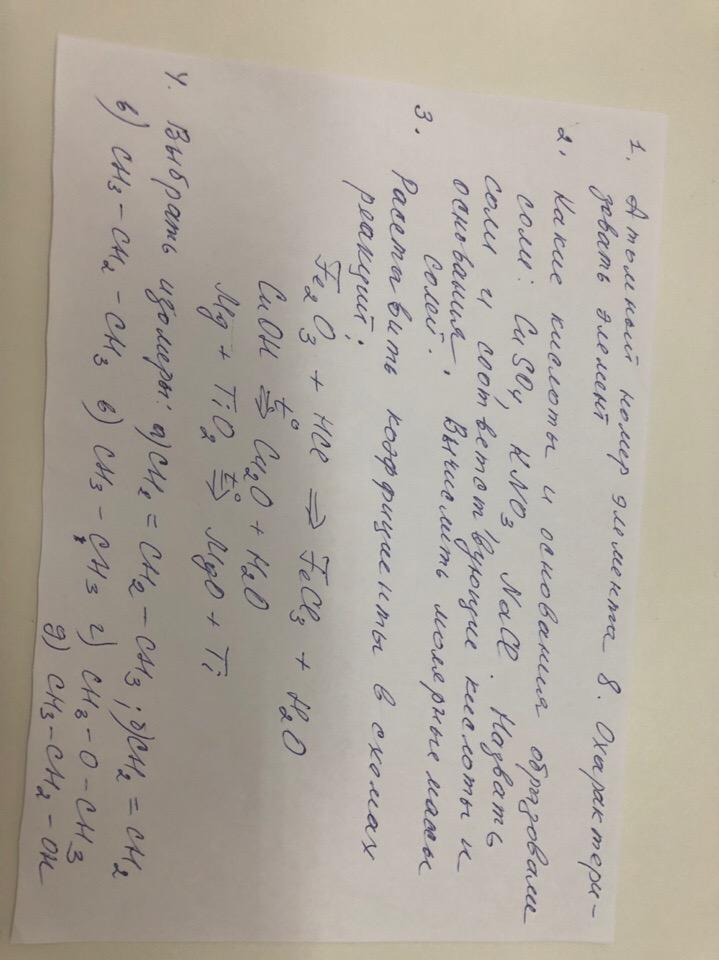 1. Атомный номер элемента 8. Охарактери-
зовать элемент
2. Какие кислоты и основания образовали
соли: CuSO4, KNO3 NaCl. Назвать
соли и соответствующие кислоты и
основания. Вычислить молярные массы
солей.
3. Расставить коэффициенты в схемах
реакций:
Fe2O3 + HCl ⇒ FeCl3 + H2O
CuOH t°⇒ Cu2O + H2O
Mg + TiO2 t°⇒ MgO + Ti
4. Выбрать изомеры: а) CH2 = CH2 – CH3; б) CH2 = CH2
в) CH3 – CH2 – CH3 в) CH3 – CH3 г) CH3 – O – CH3
д) CH3 – CH2 – OH